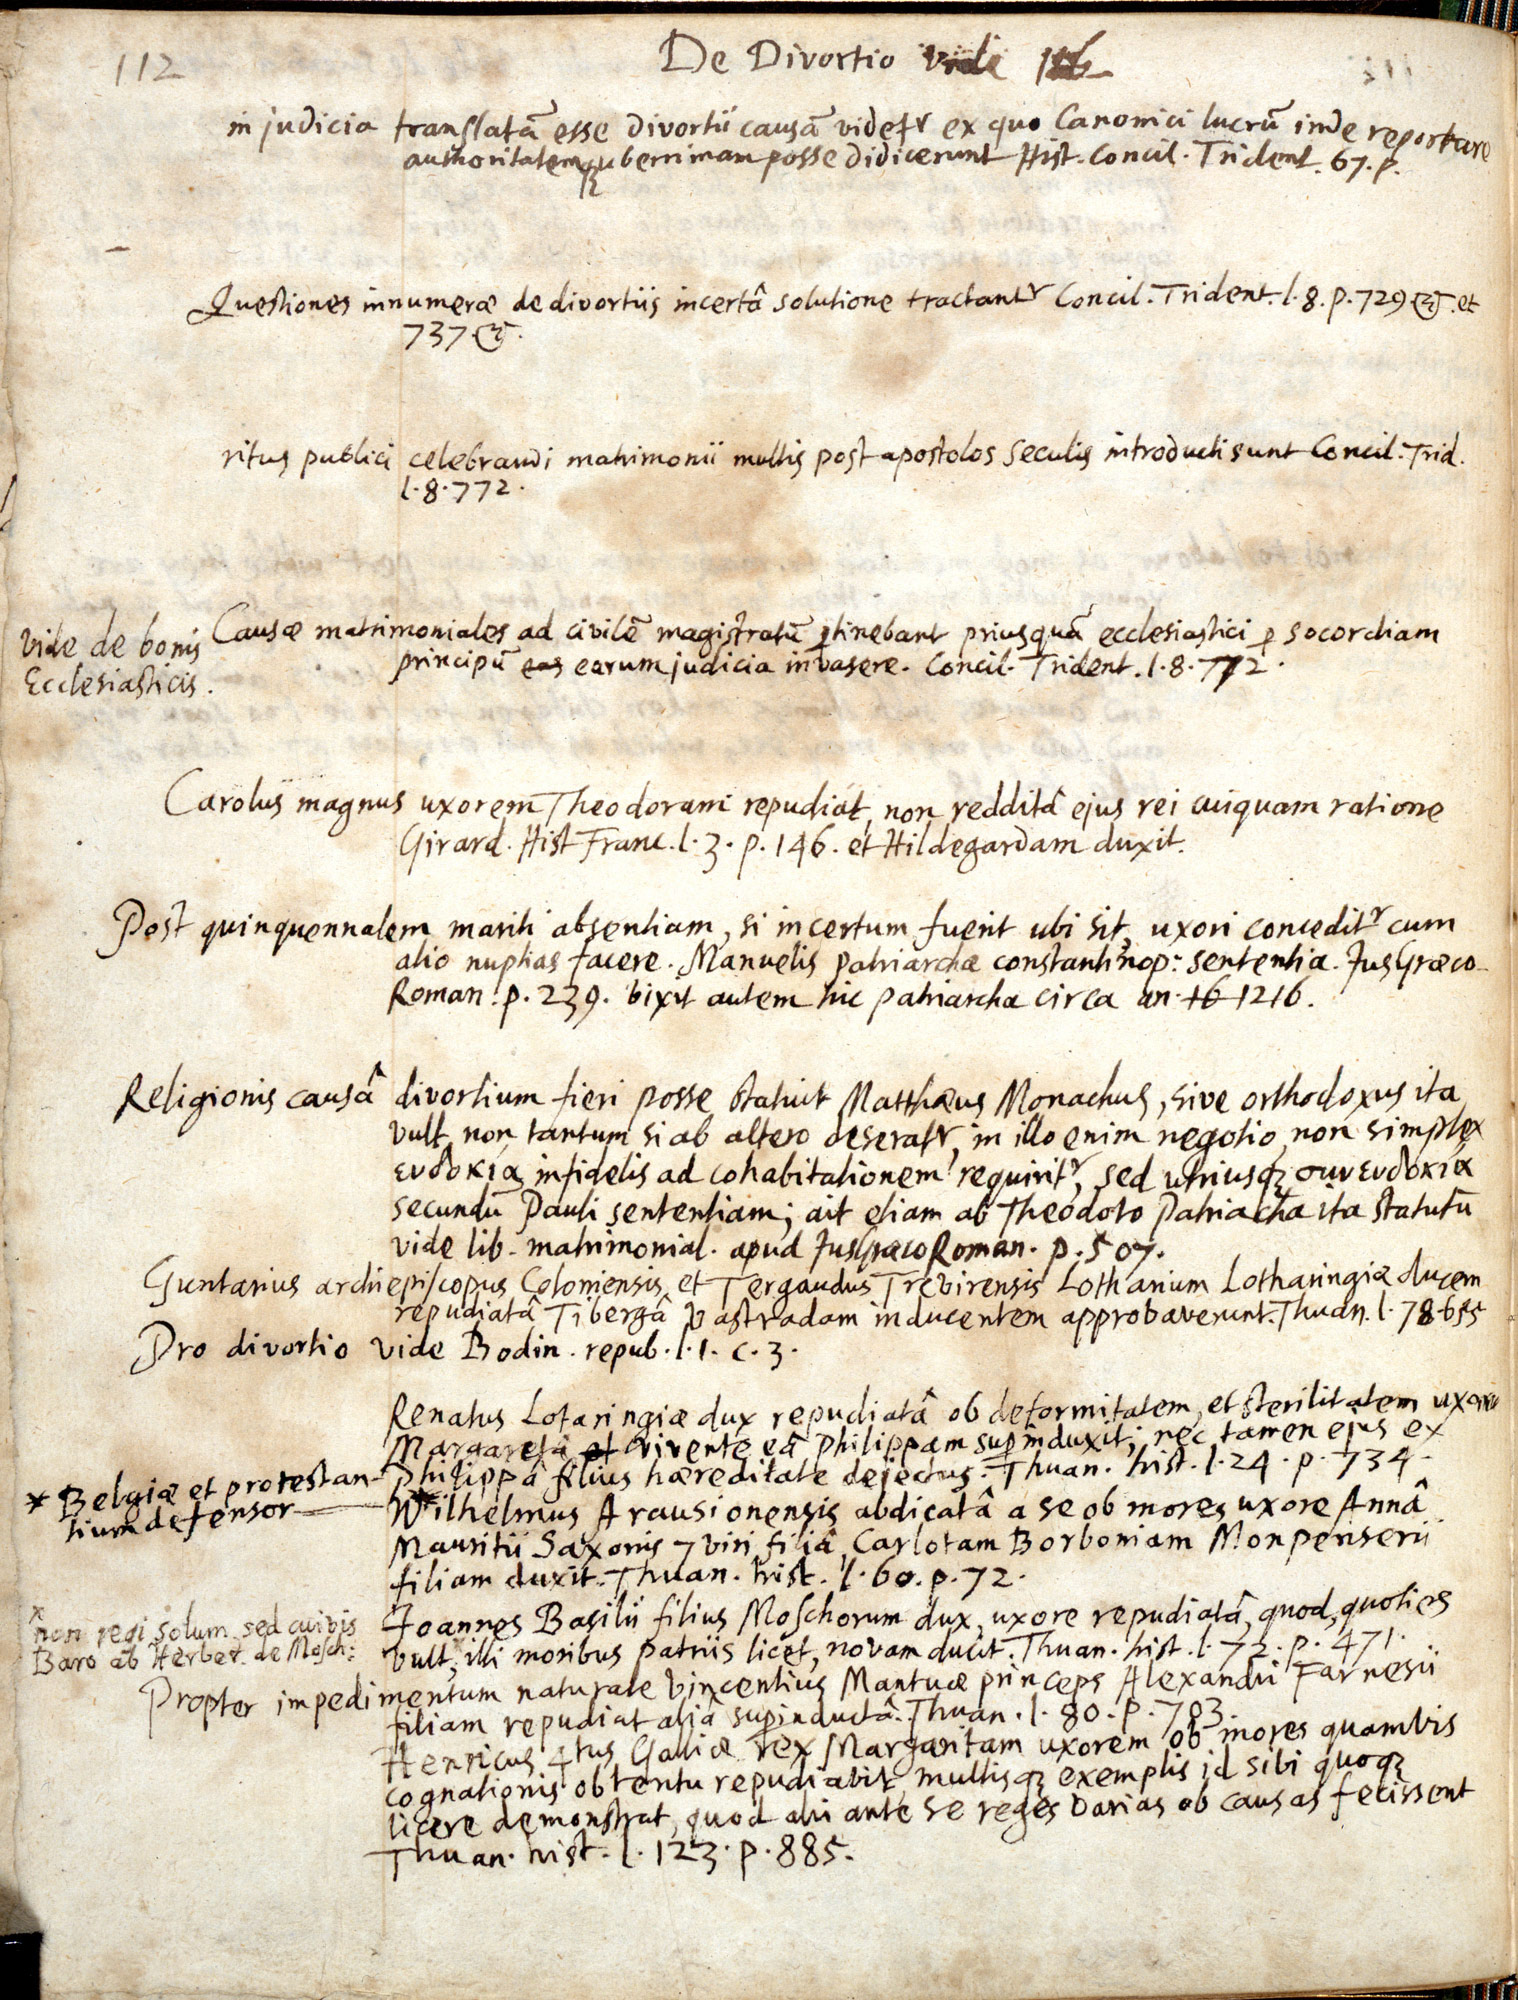 112
De Divortio vide 116
in judicia translatā esse divortii causā videtr ex quo Canonici lucrū inde reportare
authoritatemqȝ uberrimam posse didicerunt Hist. Concil. Trident. 67. p.
Questiones innumeræ de divortiis incertâ solutione tractantr Concil. Trident. l. 8. p. 729 &c. et
737. &c.
ritus publici celebrandi matrimonii multis post apostolos seculis introducti sunt Concil. Trid.
l. 8. 772.
vide de bonis
Ecclesiasticis.
Causæ matrimoniales ad civilē magistratū ꝑtinebant priusquā ecclesiastici ꝑ socordiam
principū eas earum judicia invasere. Concil. Trident. l. 8. 772.
Carolus magnus uxorem Theodoram repudiat, non redditâ ejus rei cuiquam ratione
Girard. Hist Franc. l. 3. p. 146. et Hildegardam duxit.
Post quinquennalem mariti absentiam, si incertum fuerit ubi sit, uxori conceditr cum
alio nuptias facere. Manuelis patriarchæ constantinop: sententia. Jus Græco-
Roman. p. 239. vixit autem hic patriarcha circa an. 16 1216.
Religionis causâ divortium fieri posse statuit Matthæus Monachus, sive orthodoxus ita
vult, non tantum si ab altero deseratr, in illo enim negotio non simplex
ευδοκία infidelis ad cohabitationem requiritr, sed utriusqȝ συνευδοκία
secundū Pauli sententiam; ait etiam ab Theodoto Patriacha ita statutū
vide lib. matrimonial. apud Jus Græco Roman. p. 507.
Guntarius archiepiscopus Coloniensis et Tergaudus Trevirensis Lotharium Lotharingiæ ducem
repudiatâ Tibergâ Vastradam inducentem approbaverunt. Thuan. l. 78. 655
Pro divortio vide Bodin. repub. l. 1. c. 3.
Renatus Lotaringiæ dux repudiatâ ob deformitatem, et sterilitatem uxore
Margaretâ et vivente eâ Philippam suꝑinduxit; nec tamen ejus ex
Philippâ filius hæreditate dejectus. Thuan. hist. l. 24. p. 734.
* Belgiæ et protestan-
tium defensor
W*ilhelmus Arausionensis abdicatâ a se ob mores uxore Annâ
Mauritii Saxonis 7 viri filiâ, Carlotam Borboniam Monpenserii
filiam duxit. Thuan. hist. l. 60. p. 72.
x
non regi solum sed cuivis
Baro ab Herber. de Mosch:
Joannes Basilii filius Moschorum dux, uxore repudiatâ, quod, quoties
vult, illi moribus patriis licet, novam ducit. Thuan. hist. l. 72. p. 471.
Propter impedimentum naturale Vincentius Mantuæ princeps Alexandri Farnesii
filiam repudiat aliâ suꝑinductâ. Thuan. l. 80. p. 703.
Henricus 4tus Galliæ rex Margaritam uxorem ob mores quamvis
cognationis obtentu repudiavit, multisqȝ exemplis id sibi quoqȝ
licere demonstrat, quod alii ante se reges varias ob causas fecissent
Thuan. hist. l. 123. p. 885.